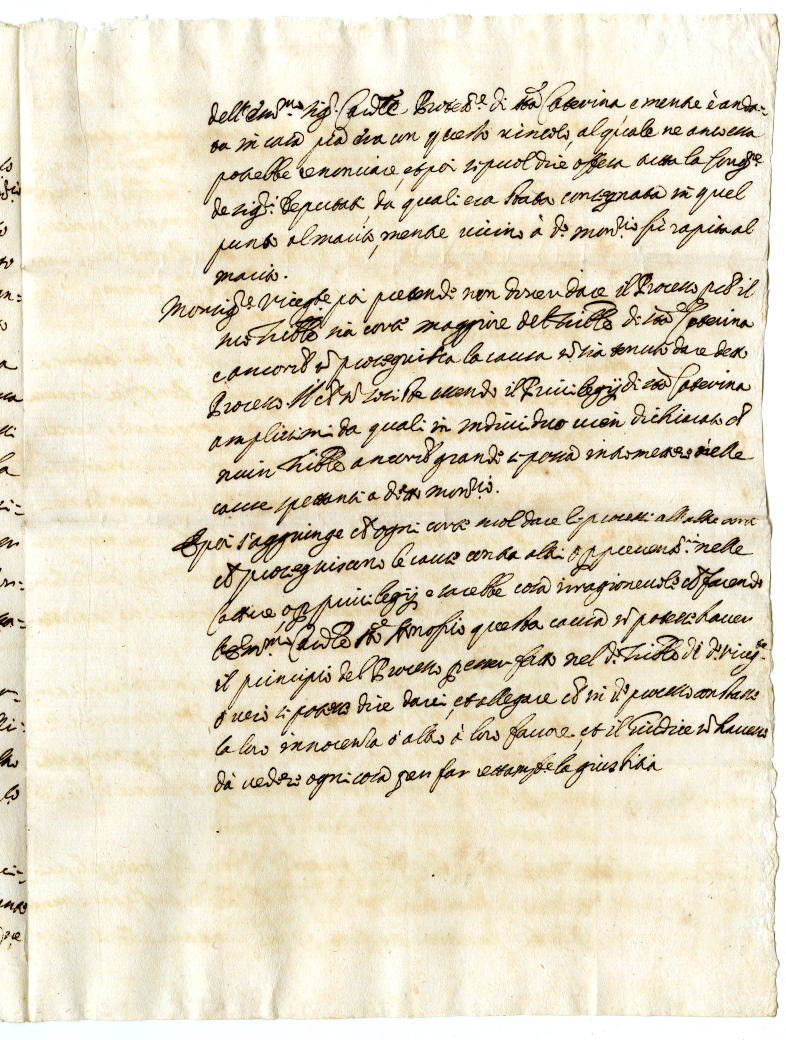 dell'Em.mo Sig. Card.le Protett.re di S.ta Caterina e mentre è anda=
ta in casa già era con questo vincolo, al quale ne anco essa
potrebbe renonciare, et poi si puol dire offesa tutta la Cong.ne
de sig.ri Deputati, da quali era stata consegnata in quel
punto al marito, mentre vicino à d.o mon.rio fù rapita al
marito.
Monsig.re Viceg.te poi pretende non dover dare il Processo perche il
suo Trib.le sia corte maggiore del Trib.le di S.ta Caterina
e ancorche si proseguisca la causa sia tenuto dare detto
Processo essendo il Privilegij di S.ta Caterina
amplissimi da quali in individuo vien dichiarato che
niun Trib.le ancorche grande si possa intromettere nelle
cause spettanti a detto mon.rio.
E poi s'aggiunge che ogni corte suol dare li processi all'altre corti
che proseguiscono le cause contra altri nelle
Privilegij e sarebbe cosa irragionevole che facendo
l'Em.mo Card.le S.to Honofrio questa causa si potesse haver
il principio del Processo per esser fatto nel d.o Trib.le di d.o Viceg.te
ò vero si potesse dire darsi, et allegare che in d.o processo constasse
la loro innocenza ò altro à loro favore, et il Giudice havesse
dà vedere ogni cosa per far la giustitia